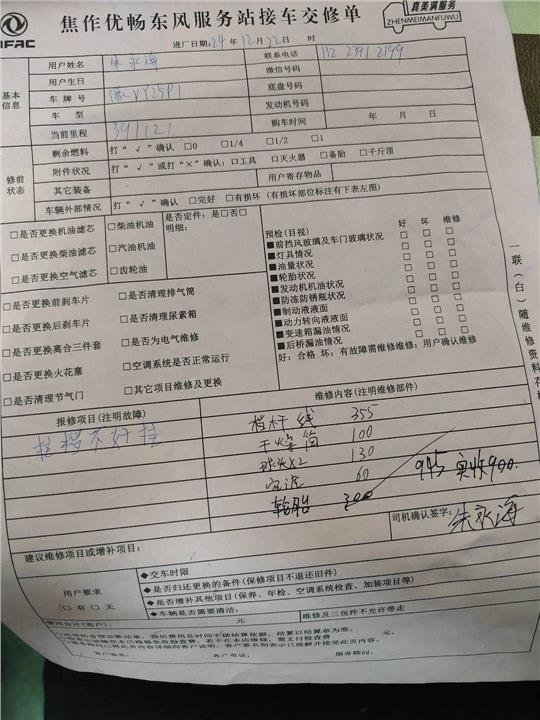 IFAC
焦作优畅东风服务站接车交修单
真美满服务
ZHENMEIMANFUWU
进厂日期: 24 年 12 月 22 日 时
基本信息
用户姓名 朱永海 联系电话 132 2391 2199
用户生日 微信号码
车 牌 号 VY25P1 底盘号码
车 型 发动机号码
当前里程 391121 购车时间 年 月 日
修前状态
剩余燃料 打“√”确认 □0 □1/4 □1/2 □1
附件状况 打“√”或打“×”确认: □工具 □灭火器 □备胎 □千斤顶
其它装备 用户寄存物品
车辆外部情况 打“√”确认 □完好 □有损坏 (有损坏部位标注有下表左图)
□是否更换机油滤芯 □柴油机油 是否定件: 是□否□
□是否更换柴油滤芯 □汽油机油 明细:
□是否更换空气滤芯 □齿轮油
□是否更换前刹车片 □是否清理排气筒
□是否更换后刹车片 □是否清理尿素箱
□是否更换离合三件套 □是否为电气维修
□是否更换火花塞 □空调系统是否正常运行
□是否清理节气门 □其它项目维修及更换
预检(目视) 好 坏 维修
■前挡风玻璃及车门玻璃状况 □ □ □
■灯具情况 □ □ □
■油量状况 □ □ □
■轮胎状况 □ □ □
■发动机机油状况 □ □ □
■防冻防锈瓶状况 □ □ □
■制动液液面 □ □ □
■动力转向液液面 □ □ □
■变速箱漏油情况 □ □ □
■后桥漏油情况 □ □ □
好: 合格 坏: 有故障需维修维修: 用户确认维修
一联(白)随维修资料存档
报修项目(注明故障) 维修内容(注明维修部件)
挂档不好挂
档杆线 355
干燥筒 100
球头x2 130
60
轮胎 300
945 实收900.
司机确认签字: 朱永海
建议维修项目或增补项目:
用户要求
□有 □无
◆交车时限
◆是否归还更换的备件(保修项目不退还旧件)
◆是否增补其他项目(保养、年检、空调系统检查、加装项目等)
◆车辆是否需要清洁: 维修及三包件不允许带走
费用合计(客户): 元
客户签名: 客户电话: 服务顾问: